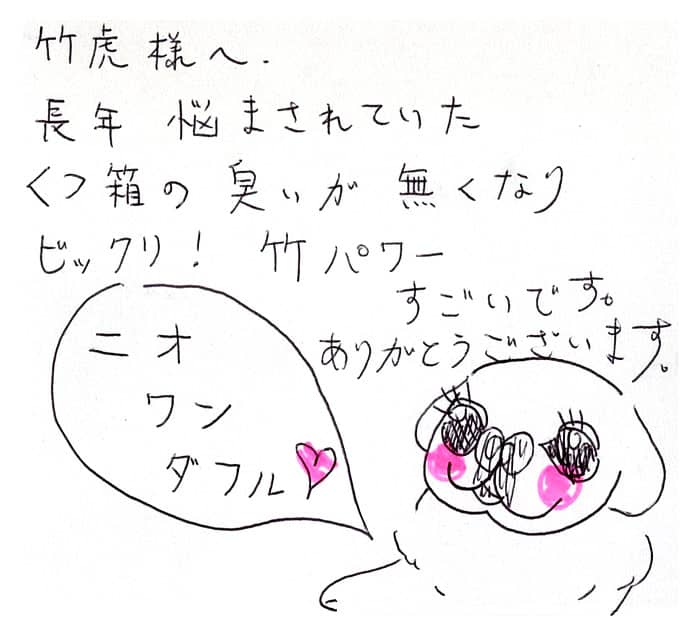 竹虎様へ.
長年 悩まされていた
くつ箱の 臭いが 無くなり
ビックリ! 竹パワー
すごいです。
ありがとうございます。
ニオ
ワン
ダフル